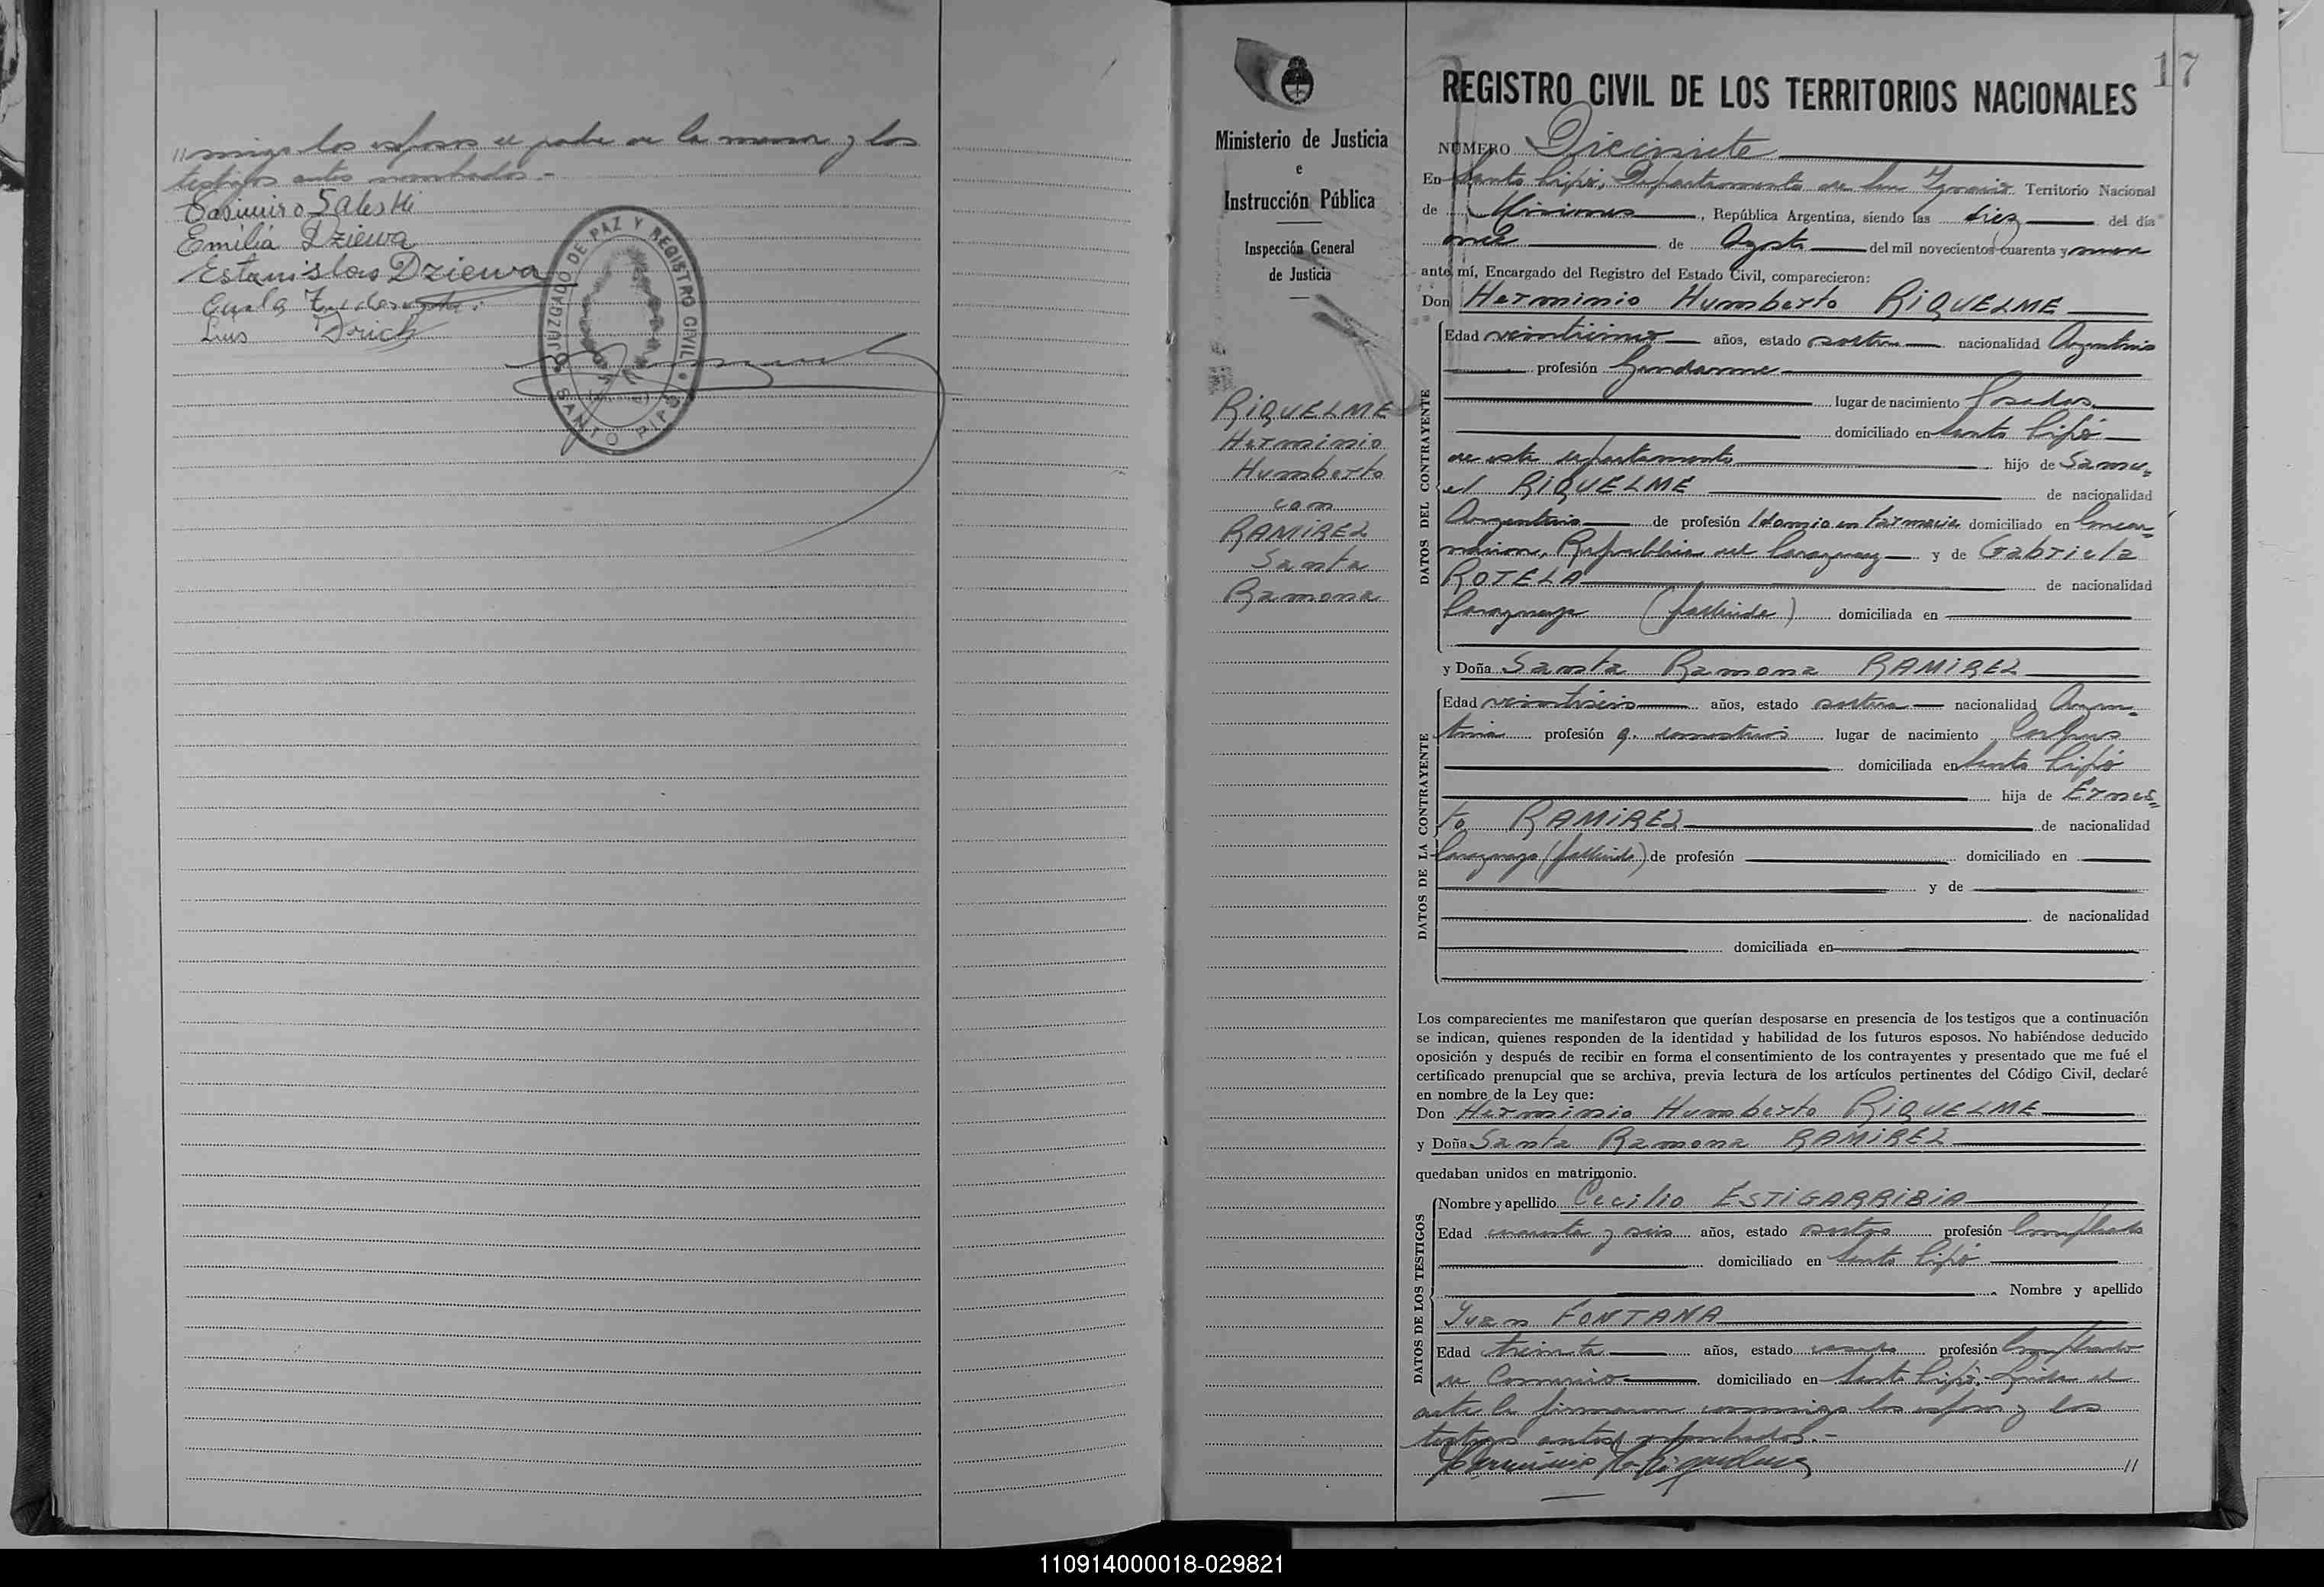 // migo los esposos el padre de la menor y los
testigos antes nombrados.-
Casimiro Saleski
Emilia Dziewa
Estanislao Dziewa
Luis
JUZGADO DE PAZ Y REGISTRO CIVIL
SANTO PIPÓ
17
Ministerio de Justicia
e
Instrucción Pública
Inspección General
de Justicia
RIQUELME
Herminio
Humberto
con
RAMIREZ
Santa
Ramona
REGISTRO CIVIL DE LOS TERRITORIOS NACIONALES
NÚMERO Diecisiete
En Santo Pipó, Departamento de San Ignacio Territorio Nacional
de Misiones, República Argentina, siendo las diez del día
once de Agosto del mil novecientos cuarenta y nueve
ante mí, Encargado del Registro del Estado Civil, comparecieron:
Don Herminio Humberto RIQUELME
DATOS DEL CONTRAYENTE
Edad veinticinco años, estado soltero nacionalidad Argentina
profesión Gendarme
lugar de nacimiento Posadas
domiciliado en Santo Pipó
de este departamento hijo de Samu=
el RIQUELME de nacionalidad
Argentina de profesión Idonio en Farmacia domiciliado en Encar=
nación, República del Paraguay y de Gabriela
ROTELA de nacionalidad
Paraguaya (fallecida) domiciliada en
y Doña Santa Ramona RAMIREZ
DATOS DE LA CONTRAYENTE
Edad veintiseis años, estado soltera nacionalidad Argen=
tina profesión q. domesticos lugar de nacimiento Corpus
domiciliada en Santo Pipó
hija de Ernes=
to RAMIREZ de nacionalidad
Paraguayo (fallecido) de profesión domiciliado en
y de
de nacionalidad
domiciliada en
Los comparecientes me manifestaron que querían desposarse en presencia de los testigos que a continuación
se indican, quienes responden de la identidad y habilidad de los futuros esposos. No habiéndose deducido
oposición y después de recibir en forma el consentimiento de los contrayentes y presentado que me fué el
certificado prenupcial que se archiva, previa lectura de los artículos pertinentes del Código Civil, declaré
en nombre de la Ley que:
Don Herminio Humberto RIQUELME
y Doña Santa Ramona RAMIREZ
quedaban unidos en matrimonio.
DATOS DE LOS TESTIGOS
Nombre y apellido Cecilio ESTIGARRIBIA
Edad cuarenta y seis años, estado soltero profesión Empleado
domiciliado en Santo Pipó
Nombre y apellido
Juan FONTANA
Edad treinta años, estado casado profesión Empleado
de Comercio domiciliado en Santo Pipó.- Leida el
acta la firmaron conmigo los esposos y los
testigos antes nombrados.-
Herminio H. Riquelme //
110914000018-029821